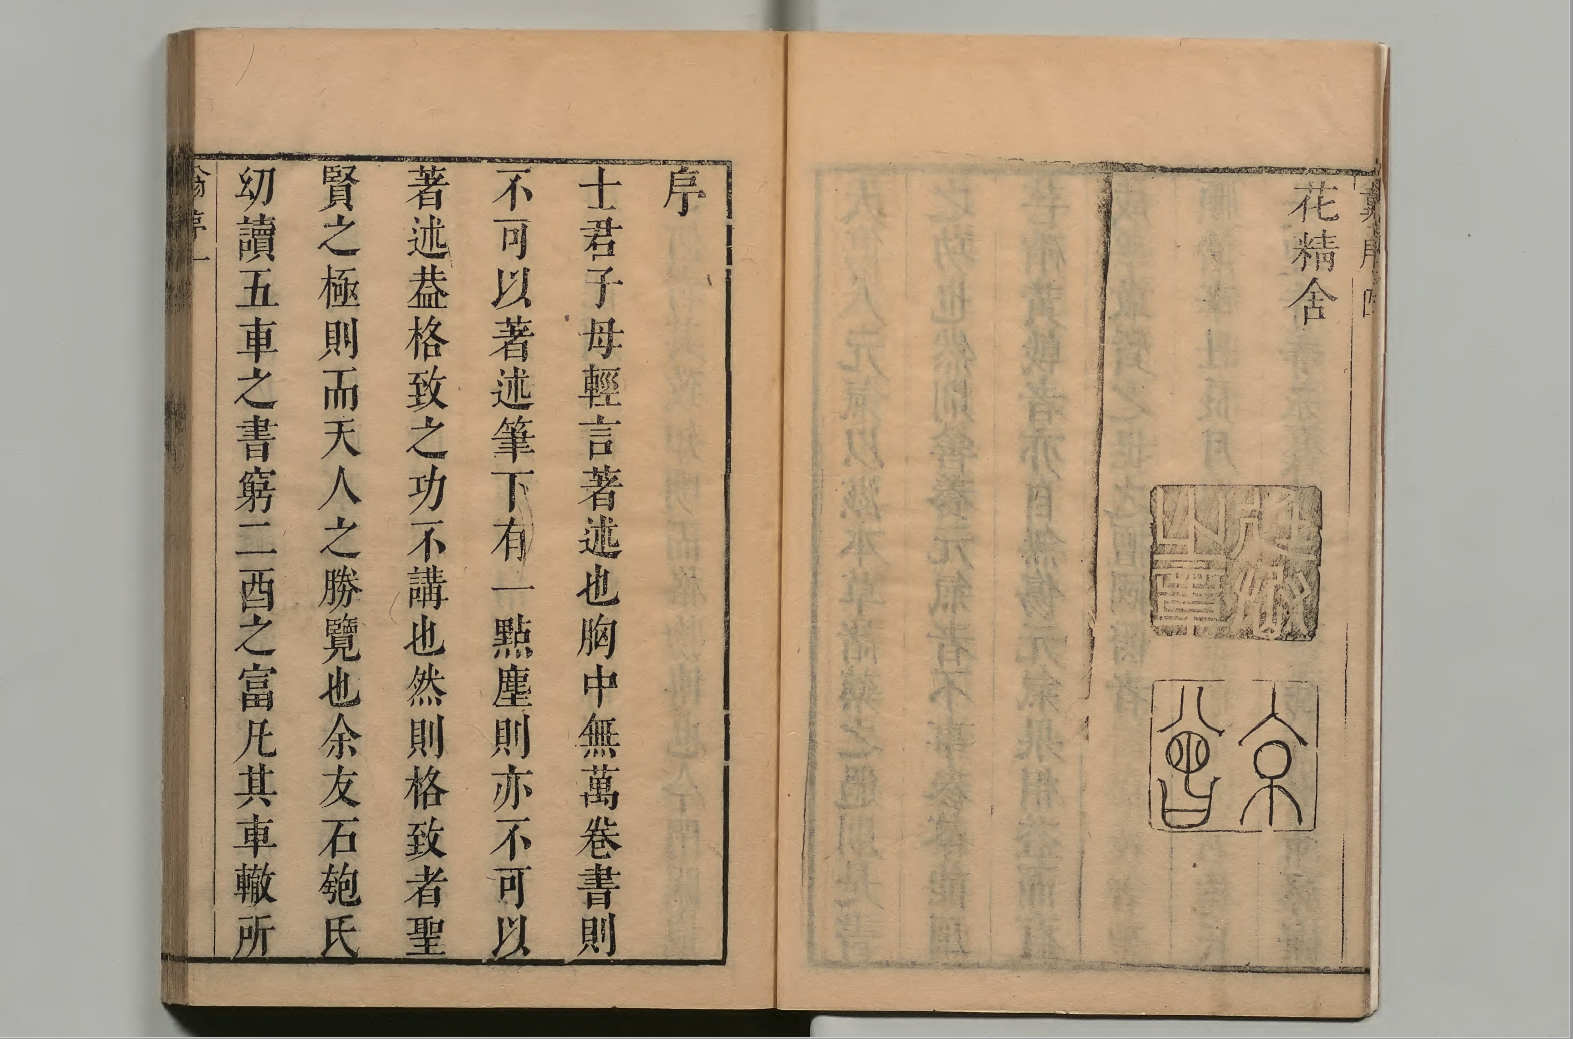 花精舍
序
士君子毋輕言著述也胸中無萬卷書則
不可以著述筆下有一點塵則亦不可以
著述葢格致之功不講也然則格致者聖
賢之極則而天人之勝覽也余友石匏氏
幼讀五車之書窮二酉之富凡其車轍所